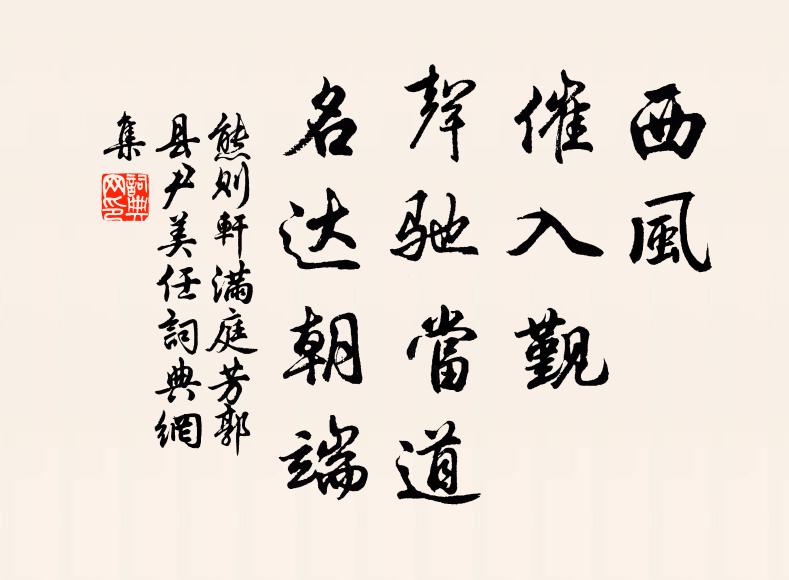 西風
催入觐
聲馳當道
名达朝端
熊则軒滿庭芳郭
县尹美任詞典網
集
詞典
网印